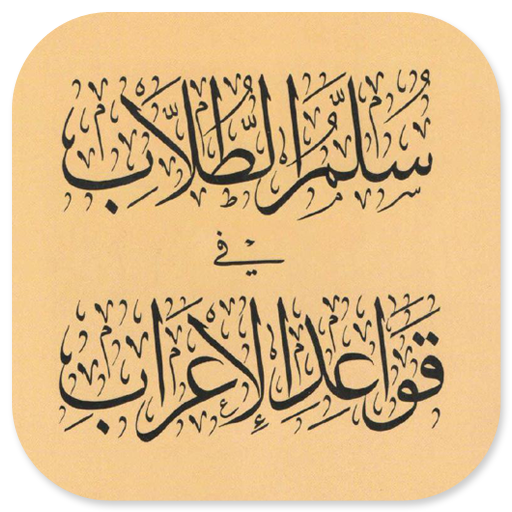 سُلَّمُ الطُّلَّابِ
في
قَوَاعِدِ الإِعْرَابِ